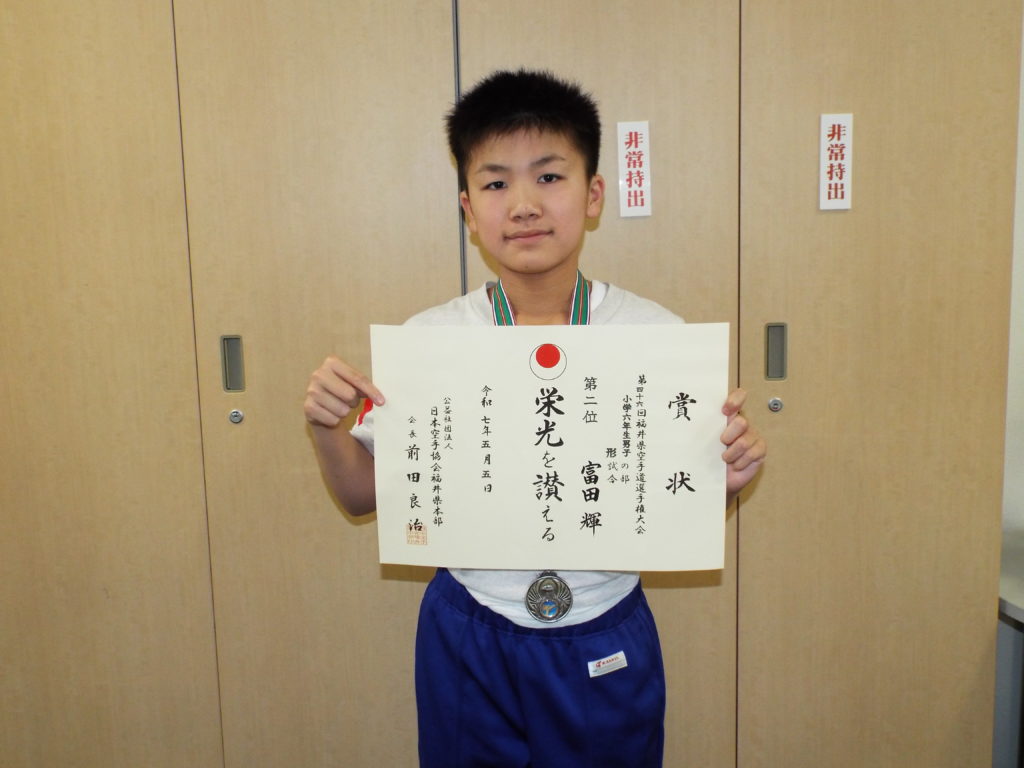 非常持出
非常持出
賞状
第四十六回福井県空手道選手権大会
小学六年生男子の部
形試合
第二位 富田輝
栄光を讃える
令和七年五月五日
公益社団法人
日本空手協会福井県本部
会長 前田良治